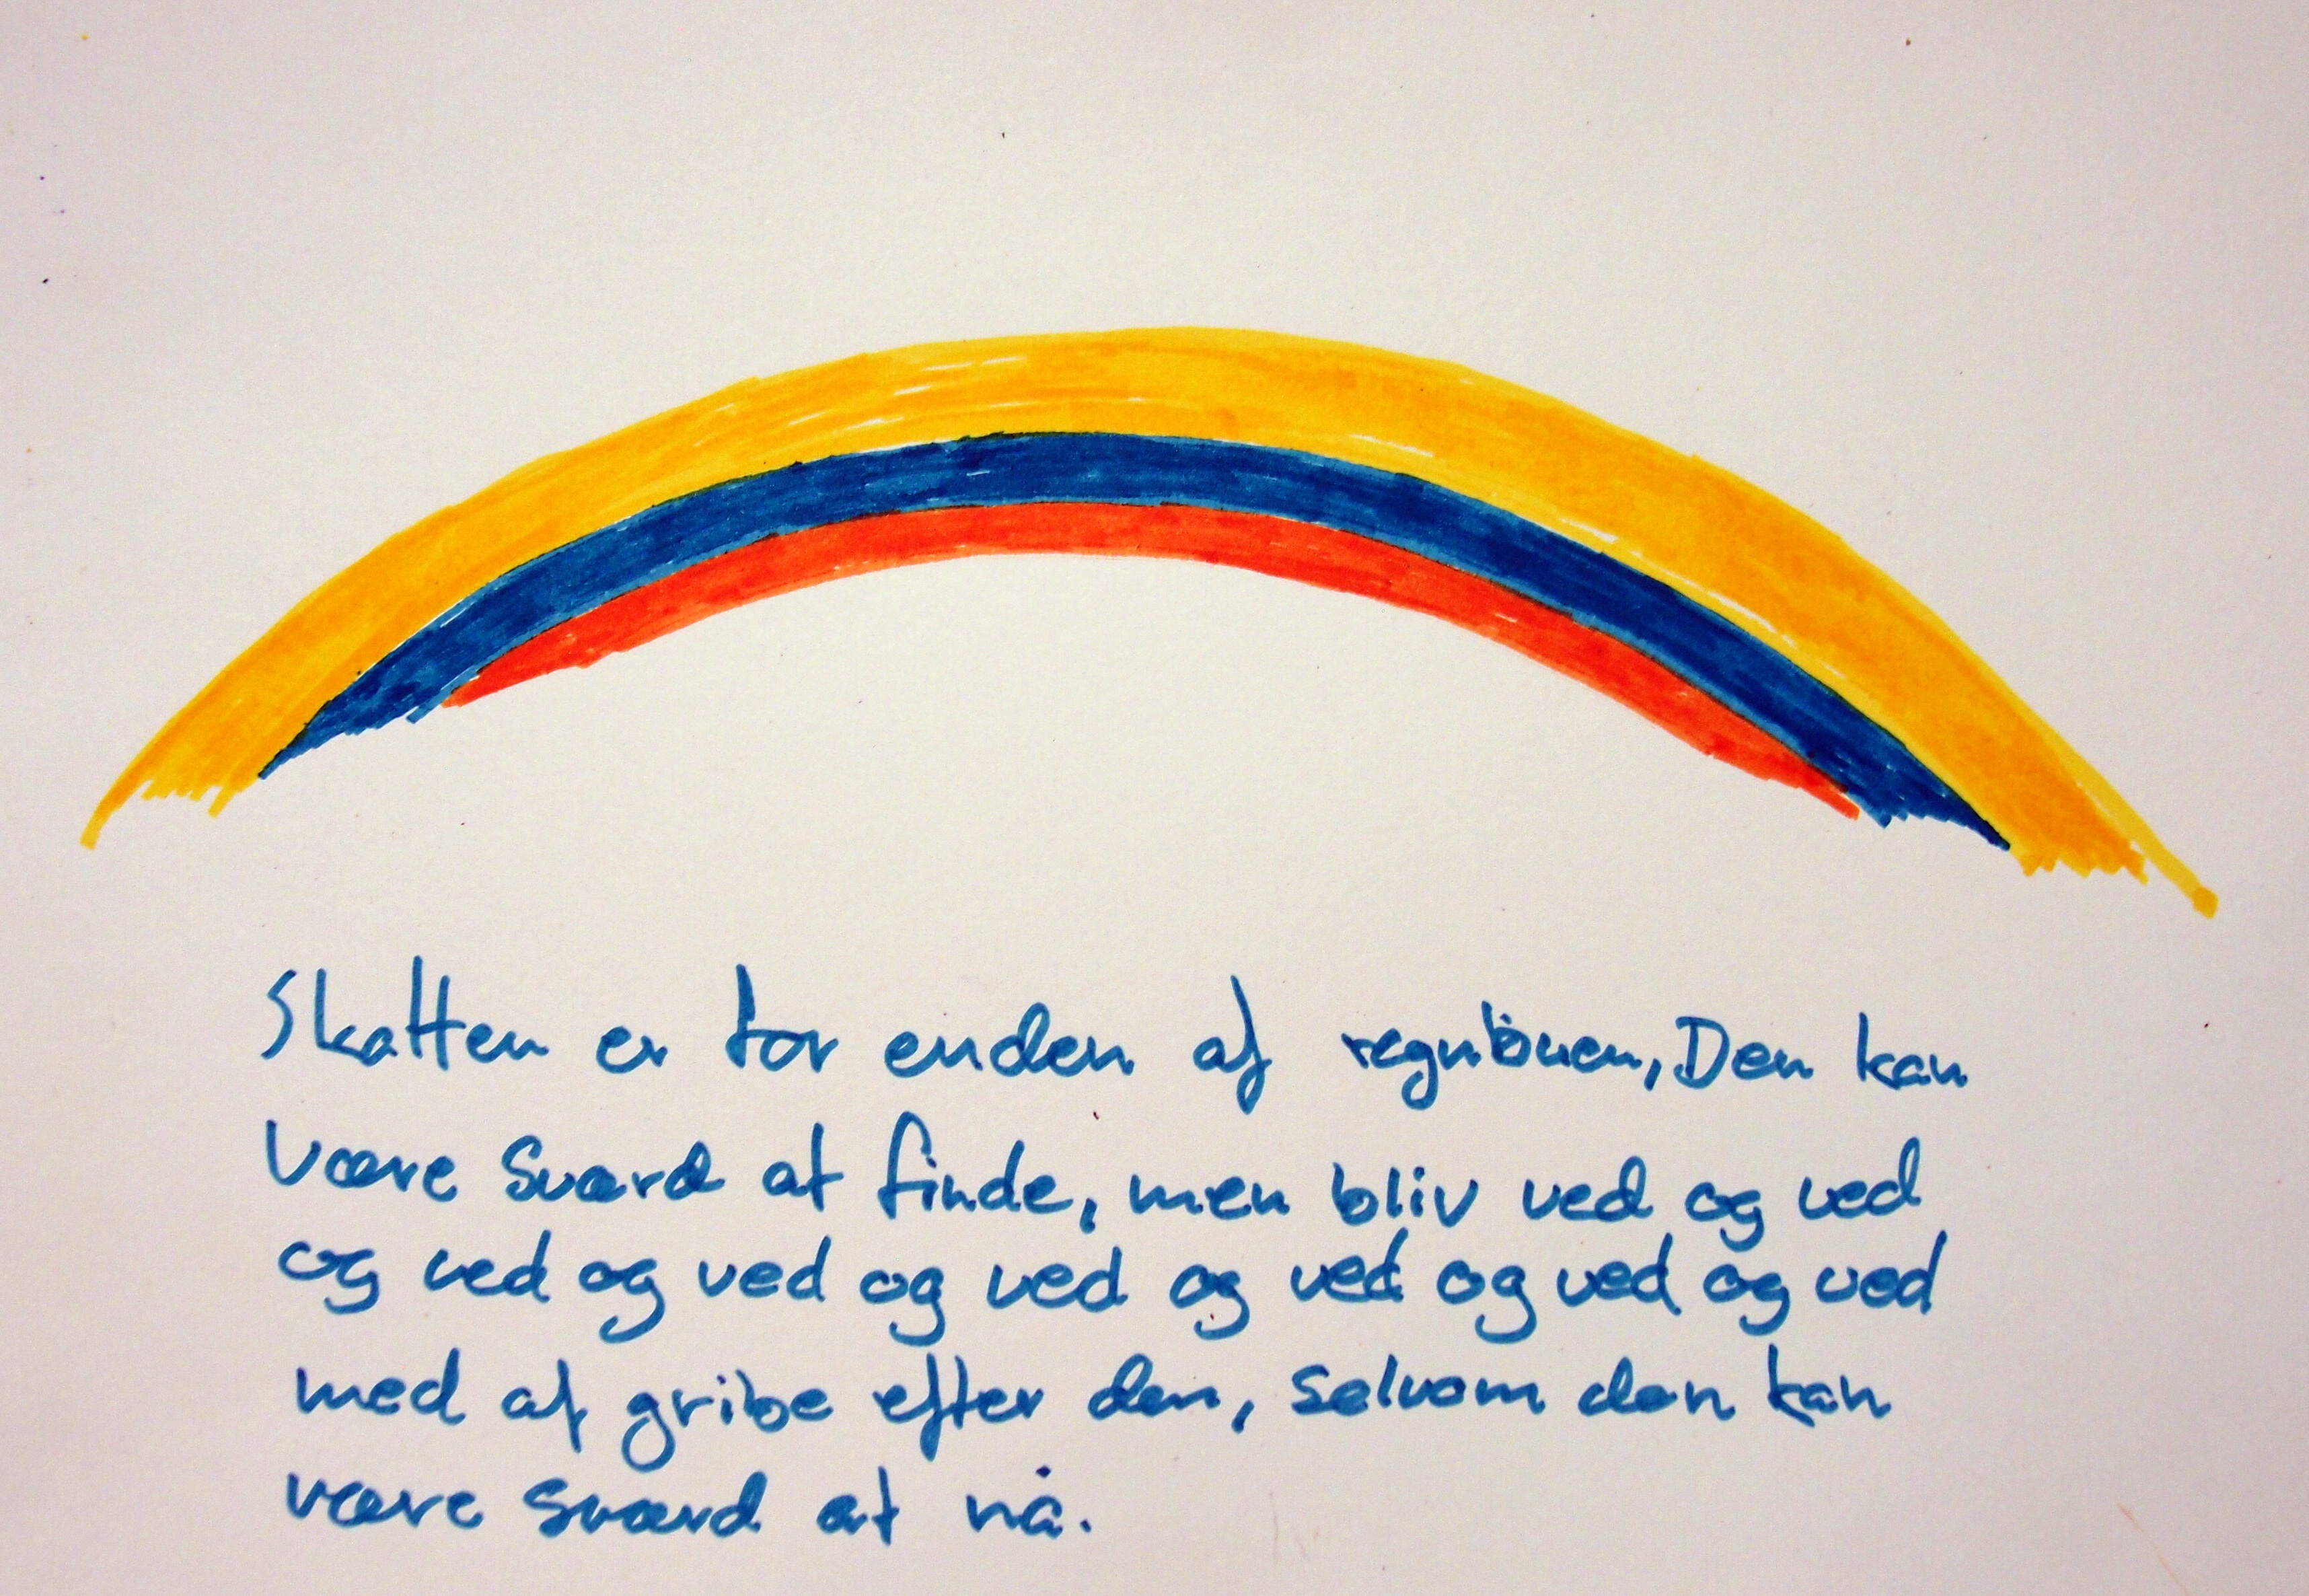 Skatten er for enden af regnbuen, Den kan
være Sværd at finde, men bliv ved og ved
og ved og ved og ved og ved og ved og ved
med at gribe efter den, selvom den kan
være sværd at nå.